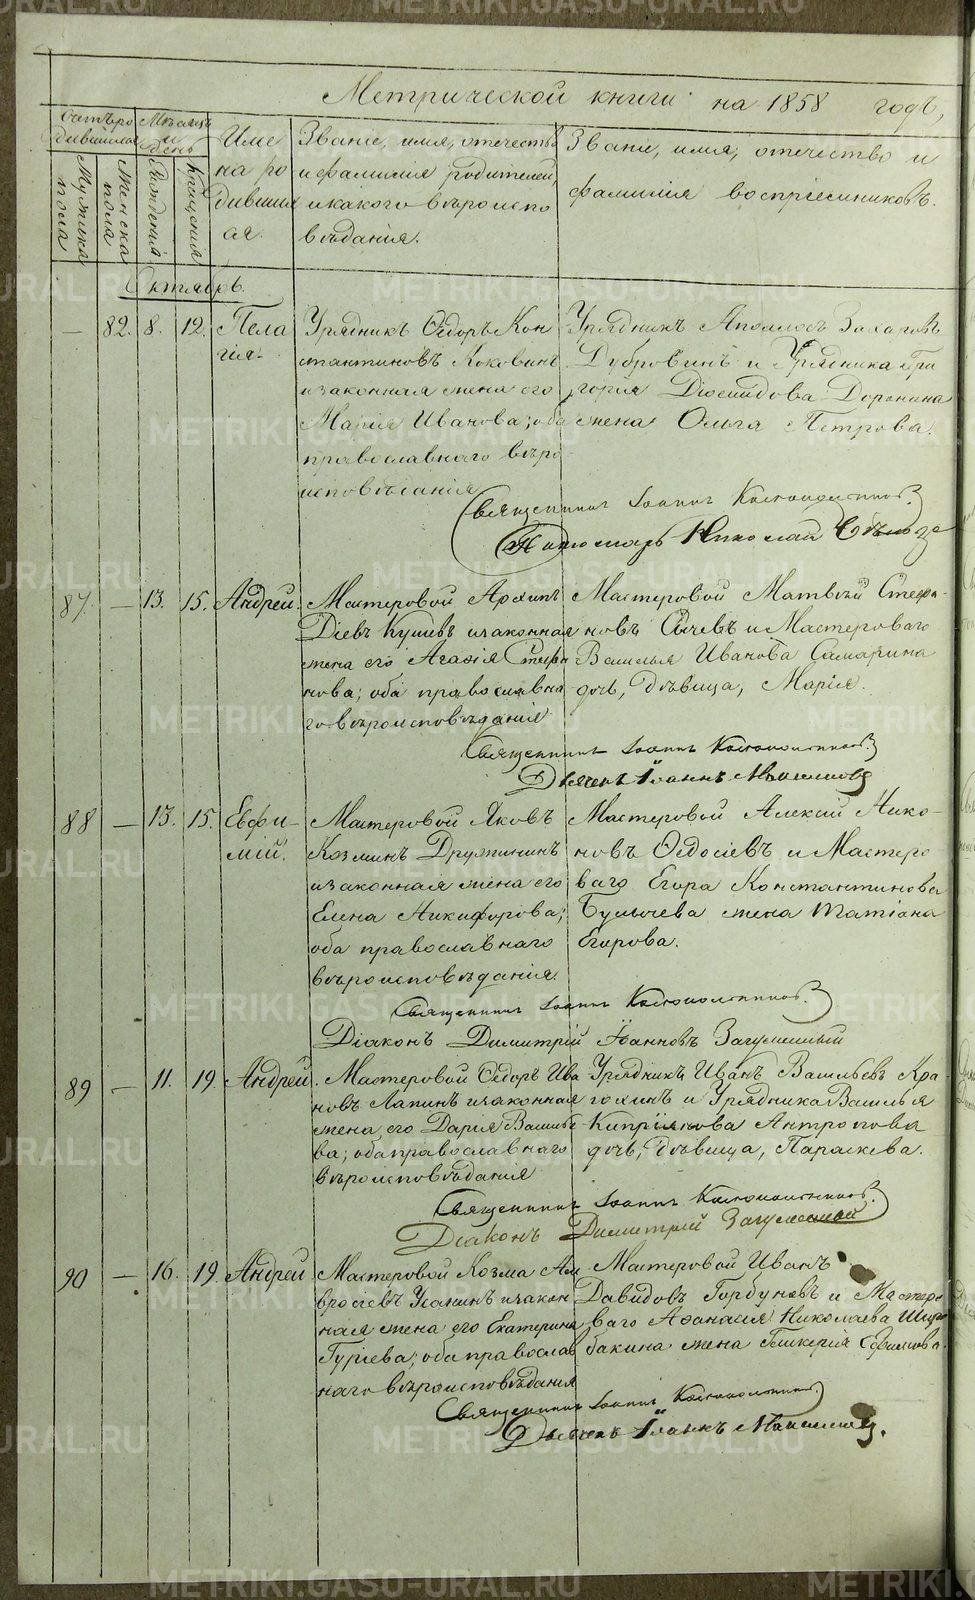 Метрической книги на 1858 годъ,
Счетъ родившихся
Мѣсяцъ и день
Имена родившихся.
Званіе, имя, отечество и фамилія родителей, и какого вѣроисповѣданія.
Званіе, имя, отечество и фамилія воспріемниковъ.
Мужеска пола
Женска пола
Рожденія
Крещенія
Октябрь.
— 82. 8. 12. Пелагія.
Урядникъ Ѳедоръ Кон
стантиновъ Коковинъ
и законная жена его
Марія Иванова; оба
православнаго вѣро
исповѣданія
Урядникъ Аполлосъ Захаровъ
Дубровинъ и Урядника Гри
горія Діомидова Доронина
жена Ольга Петрова.
Священникъ Іоаннъ
Пономарь Николай
87. — 13. 15. Андрей.
Мастеровой Архипъ
Діевъ и законная
жена его Агафія Стефа
нова; оба православна
го вѣроисповѣданія
Мастеровой Матвѣй Стефа-
новъ Сычевъ и Мастероваго
Василья Иванова Самарина
дочь, дѣвица, Марія.
Священникъ Іоаннъ
Дьячекъ Іоаннъ
88 — 13. 15. Евфи-
мій.
Мастеровой Яковъ
Козминъ Дружининъ
и законная жена его
Елена Никифорова;
оба православнаго
вѣроисповѣданія.
Мастеровой Алексій Нико-
новъ Ѳедосіевъ и Мастеро
ваго Егора Константинова
Булычева жена Татіана
Егорова.
Священникъ Іоаннъ
Діаконъ Димитрій Іоанновъ Загуменный
89 — 11. 19. Андрей.
Мастеровой Ѳедоръ Ива
новъ Лапинъ и законная
жена его Дарія Василье
ва; оба православнаго
вѣроисповѣданія
Урядникъ Иванъ Васильевъ Кра-
гохинъ и Урядника Василья
Кипріянова Антропова
дочь, дѣвица, Параскева.
Священникъ Іоаннъ
Діаконъ Димитрій Загуменный
90 — 16. 19. Андрей
Мастеровой Козма Ам
вросіевъ Усанинъ и закон
ная жена его Екатерина
Гуріева; оба православ
наго вѣроисповѣданія
Мастеровой Иванъ
Давидовъ Горбуновъ и Мастеро
ваго Аѳанасія Николаева
жена Гликерія
Священникъ Іоаннъ
Дьячекъ Іоаннъ
METRIKI.GASO-URAL.RU